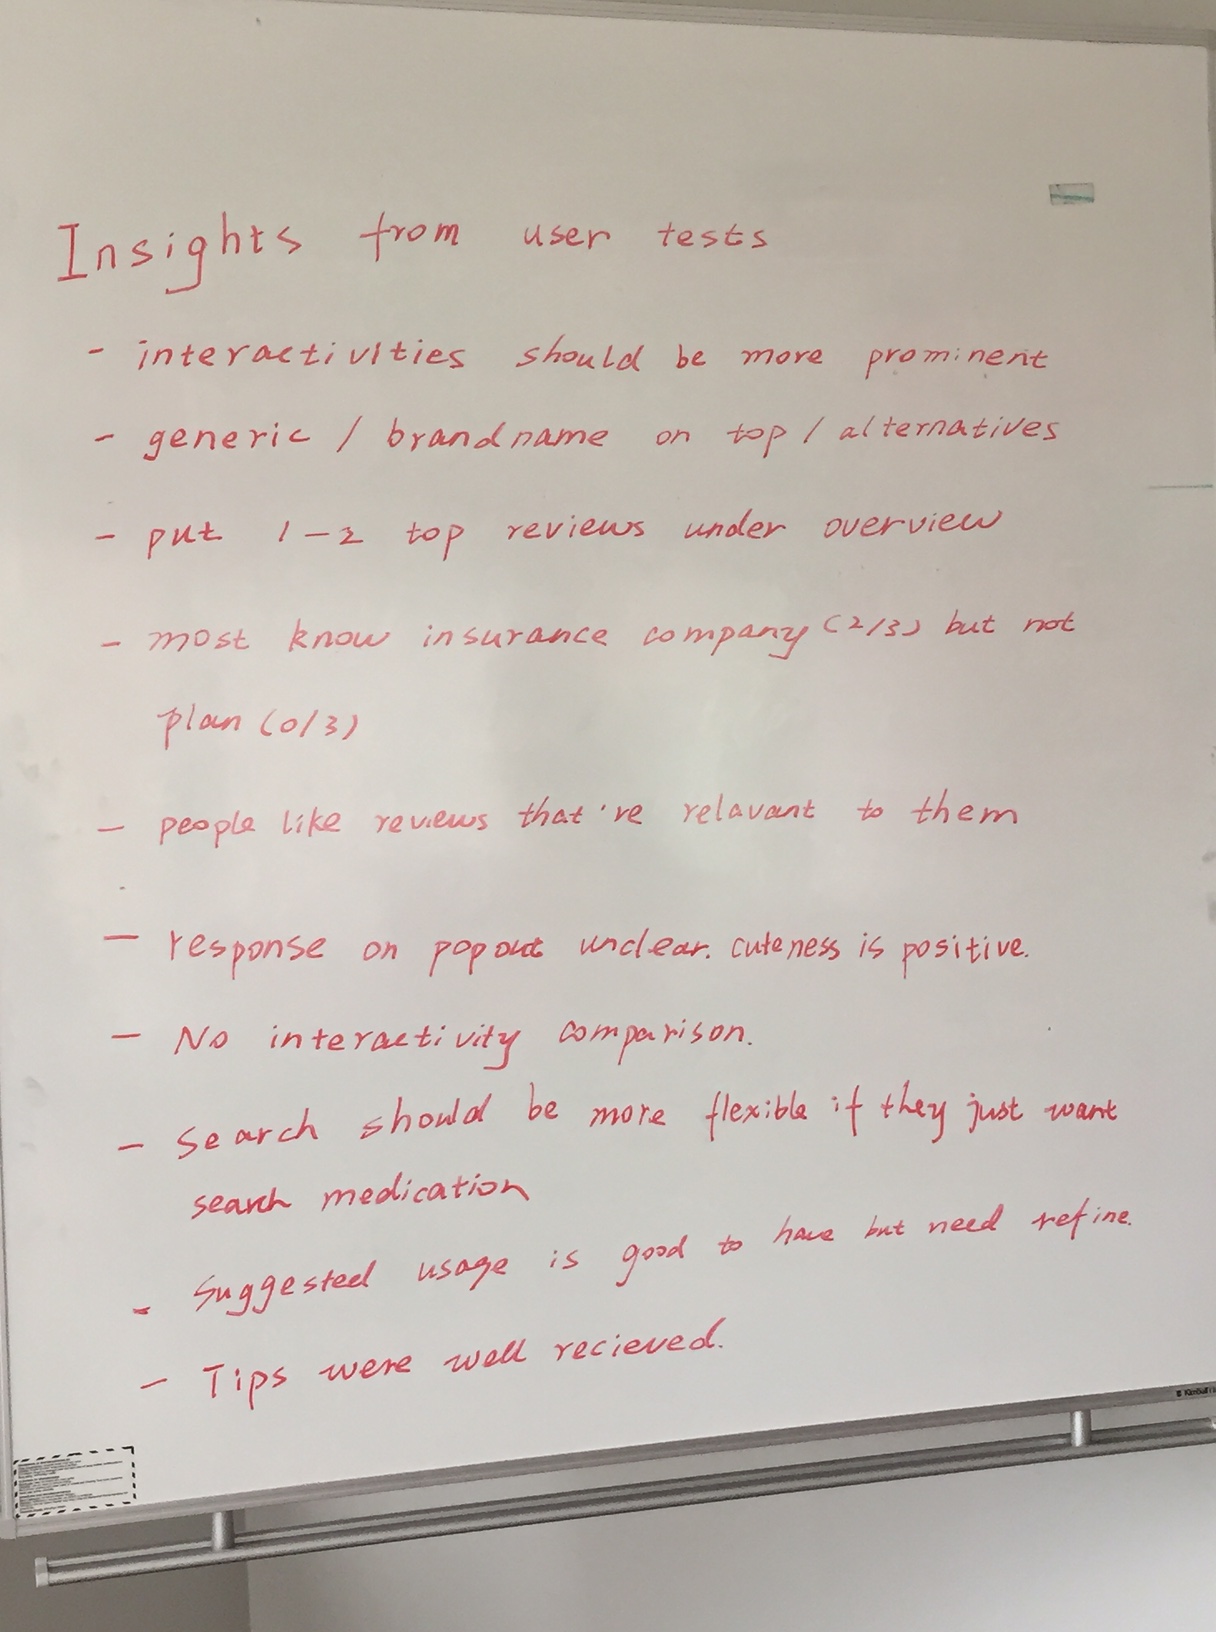 Insights from user tests
- interactivities should be more prominent
- generic / brandname on top / alternatives
- put 1-2 top reviews under overview
- most know insurance company (2/3) but not
plan (0/3)
- people like reviews that're relavant to them
- response on popout unclear. cuteness is positive.
- No interactivity comparison.
- Search should be more flexible if they just want
search medication
- Suggested usage is good to have but need refine.
- Tips were well recieved.